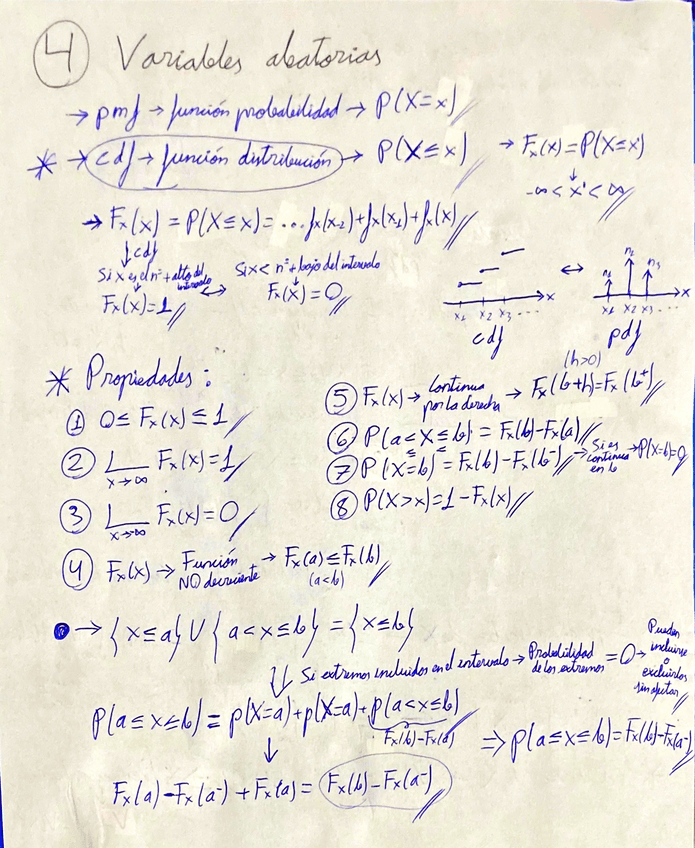 4 Variables aleatorias
→ pmf → función probabilidad → P(X=x)
* → cdf → función distribución → P(X≤x) → Fx(x) = P(X≤x)
↓
-∞ < x < ∞
→ Fx(x) = P(X≤x) = ... fx(x-2)+fx(x-1)+fx(x)
↓ cdf
Si x es el nº + alto del intervalo
↓
Fx(x)=1
↔
Si x < nº + bajo del intervalo
↓
Fx(x)=0
x1 x2 x3 ... x
cdf
↔
n1 n2 n3
x1 x2 x3 ... x
pdf
* Propiedades:
① 0 ≤ Fx(x) ≤ 1
② L x→∞ Fx(x)=1
③ L x→-∞ Fx(x)=0
④ Fx(x) → Función NO decreciente → Fx(a) ≤ Fx(b)
(a<b)
(h>0)
⑤ Fx(x) → continua por la derecha → Fx(b+h)=Fx(b⁺)
⑥ P(a<X≤b) = Fx(b)-Fx(a)
⑦ P(X=b) = Fx(b)-Fx(b⁻) → Si es continua en b → P(X=b)=0
⑧ P(X>x)=1-Fx(x)
→ {x≤a} U {a<x≤b} = {x≤b}
⇓ Si extremos incluidos en el intervalo → Probabilidad de los extremos = 0 → Pueden incluirse o excluirlos sin afectar
P(a≤x≤b) = p(X=a)+p(X=a)+p(a<x≤b)
Fx(b)-Fx(a)
⇒ p(a≤x≤b)=Fx(b)-Fx(a⁻)
↓
Fx(a)-Fx(a⁻)+Fx(a) = Fx(b)-Fx(a⁻)